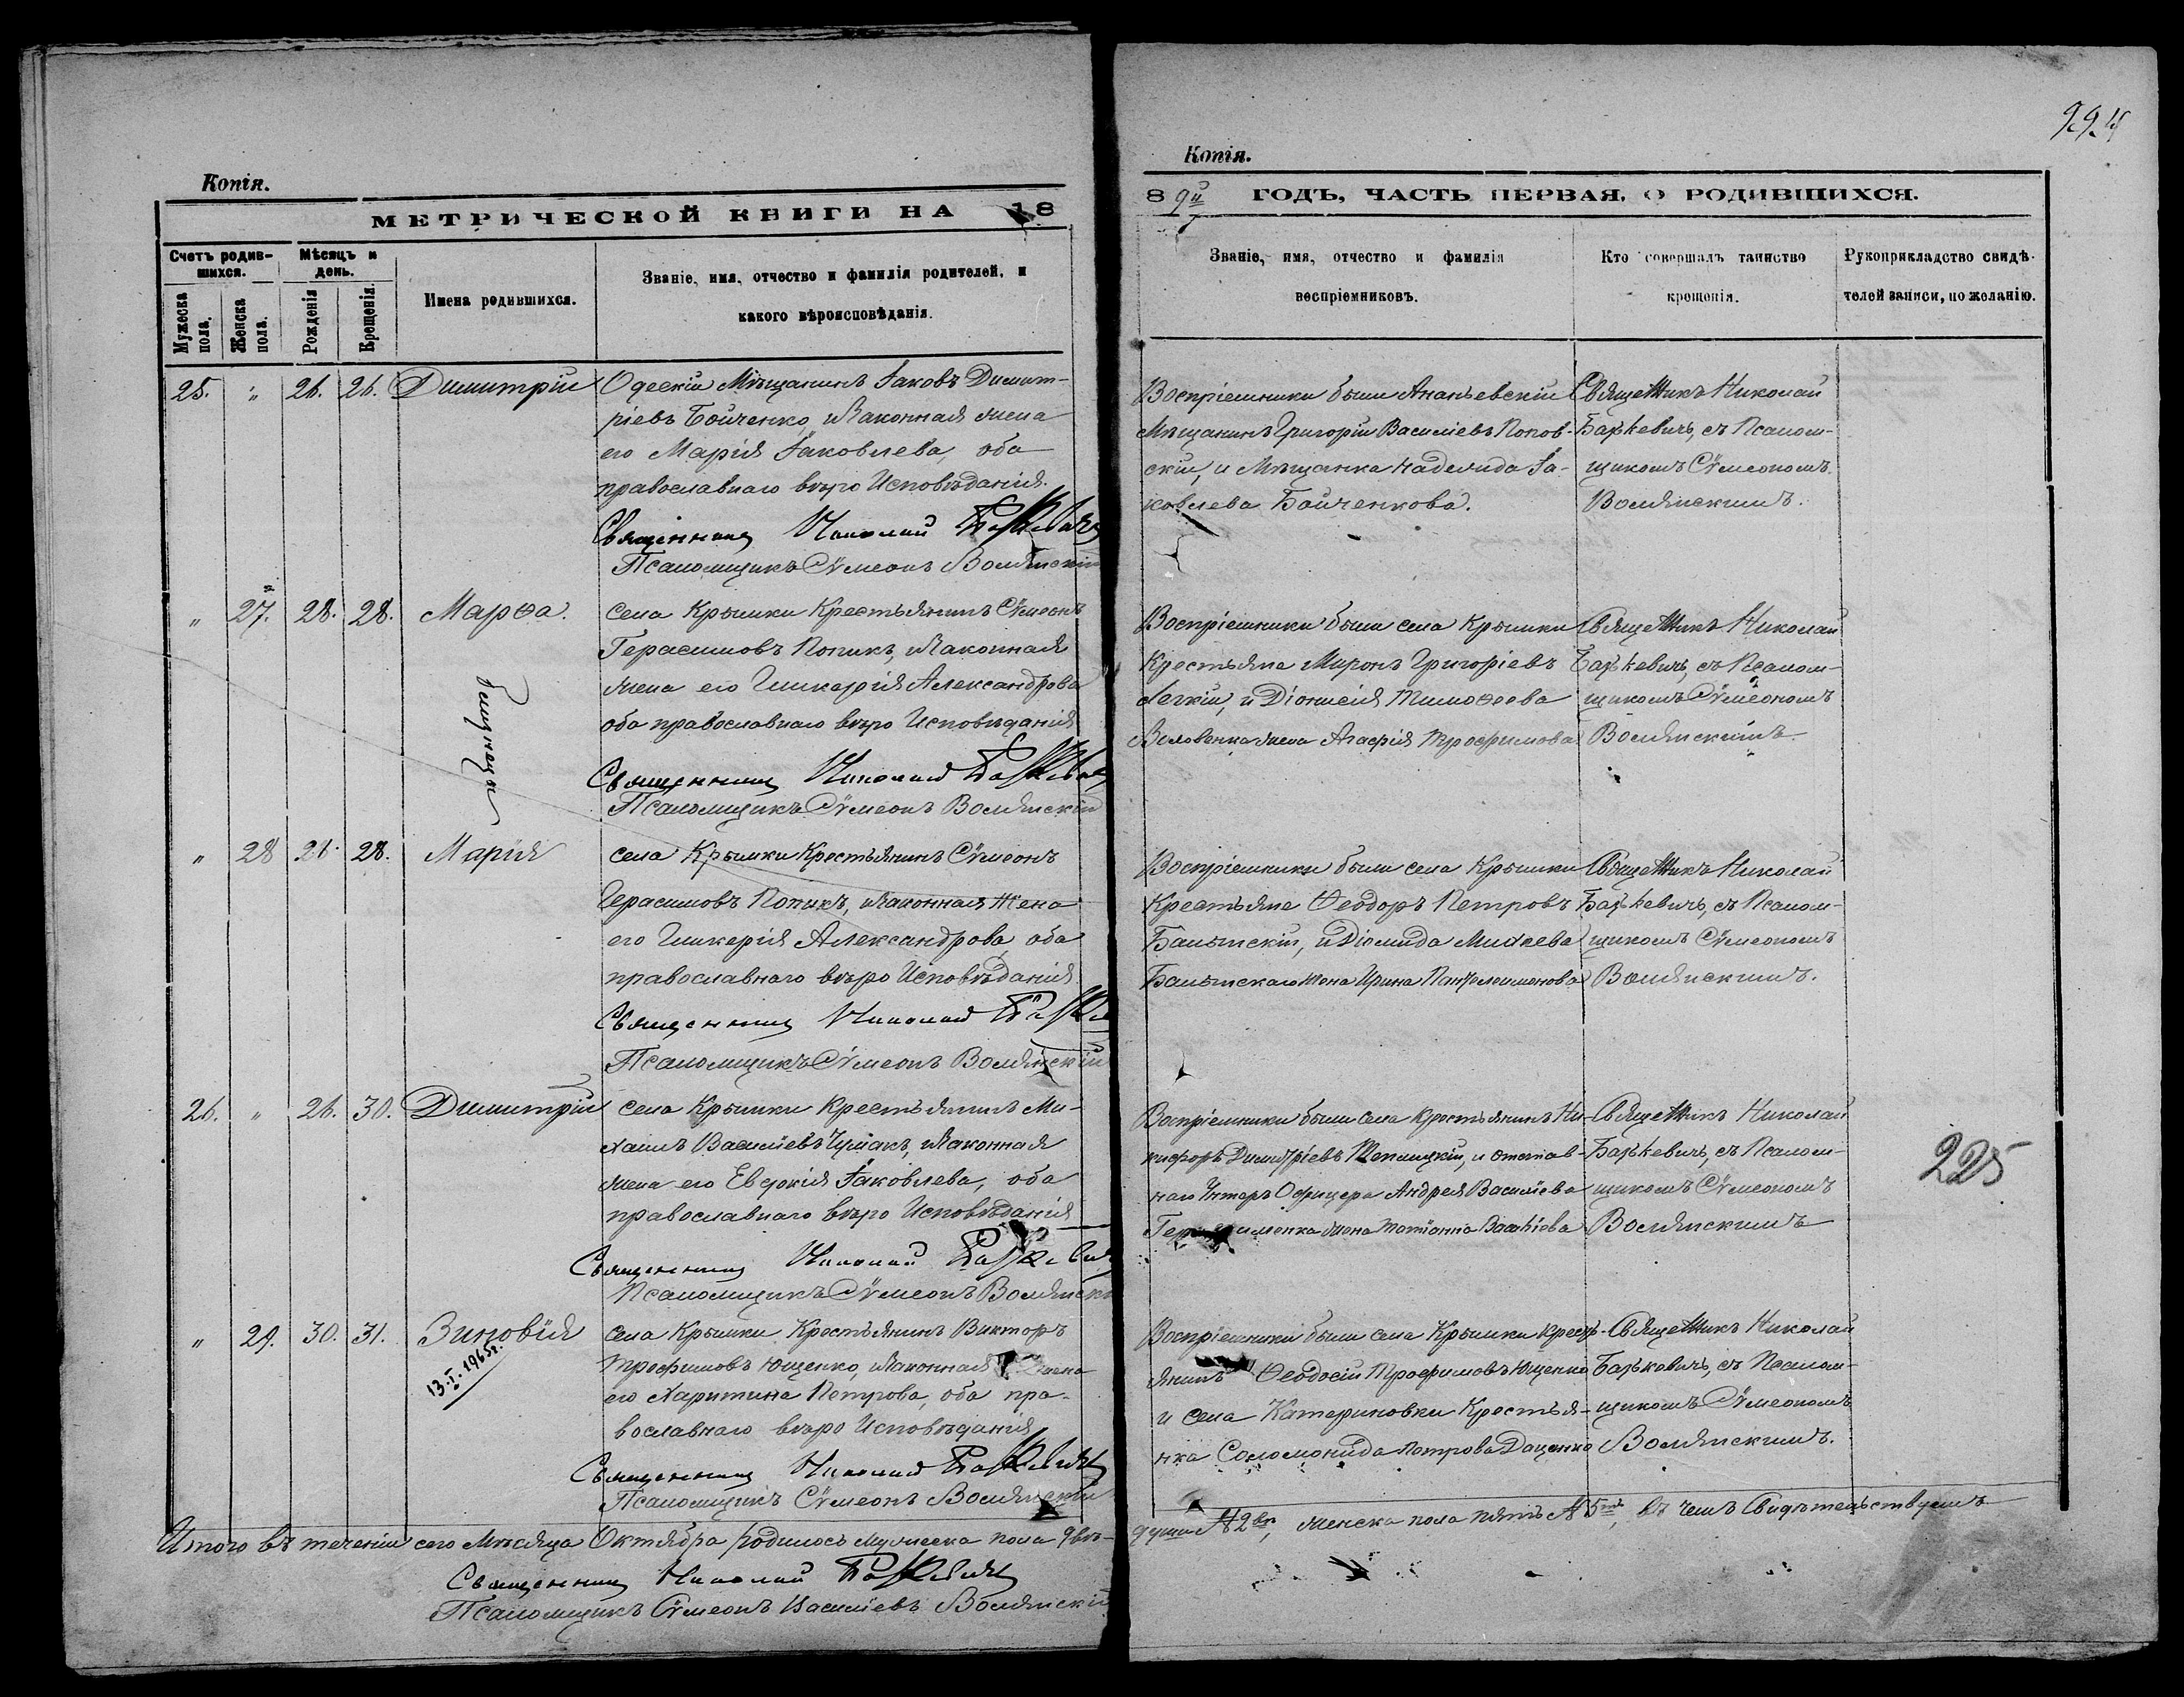 Копія.
МЕТРИЧЕСКОЙ КНИГИ НА 18
Счетъ родив-
шихся.
Мѣсяцъ и
день.
Мужеска
пола.
Женска
пола.
Рожденія
Крещенія.
Имена родившихся.
Званіе, имя, отчество и фамилія родителей, и
какого вѣроисповѣданія.
25. " 26. 26. Димитрій
Одескій Мѣщанинъ Іаковъ Димит-
ріевъ Бойченко, и Законная жена
его Марія Іаковлева, оба
православнаго вѣро Исповѣданія.
Священникъ Николай Барькевичъ
Псаломщикъ Сѵмеонъ Волянскій
" 27. 28. 28. Марѳа.
села Крымки Крестьянинъ Сѵмеонъ
Герасимовъ Попикъ, и Законная
жена его Гликерія Александрова
оба православнаго вѣро Исповѣданія
Священникъ Николай Барькевичъ
Псаломщикъ Сѵмеонъ Волянскій
Близнецы
" 28 28. 28. Марія
села Крымки Крестьянинъ Сѵмеонъ
Герасимовъ Попикъ, и Законная Жена
его Гликерія Александрова, оба
православнаго вѣро Исповѣданія
Священникъ Николай
Псаломщикъ Сѵмеонъ Волянскій
26. " 26. 30. Димитрій
села Крымки Крестьянинъ Ми-
хаилъ Василіевъ Чумакъ, и Законная
жена его Евдокія Іаковлева, оба
православнаго вѣро Исповѣданія
Священникъ Николай Барькевичъ
Псаломщикъ Сѵмеонъ Волянскій
" 29. 30. 31. Зиновія
13.I.1965г.
села Крымки Крестьянинъ Викторъ
Трофимовъ Ющенко, и Законная Жена
его Харитина Петрова, оба пра-
вославнаго вѣро Исповѣданія
Священникъ Николай Барькевичъ
Псаломщикъ Сѵмеонъ Волянскій
Итого въ теченіи сего Мѣсяца Октября родилось мужеска пола двѣ-
Священникъ Николай Барькевичъ
Псаломщикъ Сѵмеонъ Василіевъ Волянскій
994
Копія.
8 ГОДЪ, ЧАСТЬ ПЕРВАЯ, О РОДИВШИХСЯ.
Званіе, имя, отчество и фамилія
воспріемниковъ.
Кто совершалъ таинство
крещенія.
Рукоприкладство свидѣ-
телей записи, по желанію.
Воспріемники были Ананьевскій
Мѣщанинъ Григорій Василіевъ Попов-
скій, и Мѣщанка Надежда Іа-
ковлева Бойченкова.
Священникъ Николай
Барькевичъ, съ Псалом-
щикомъ Сѵмеономъ
Волянскимъ.
Воспріемники были села Крымки
Крестьяне Миронъ Григоріевъ
Легкій, и Діонисія Тимоѳеева
жена Агафія Трофимова
Священникъ Николай
Барькевичъ, съ Псалом-
щикомъ Сѵмеономъ
Волянскимъ
Воспріемники были села Крымки
Крестьяне Ѳеодоръ Петровъ
и Діомида Михеева
жена Ирина Пантелеимонова
Священникъ Николай
Барькевичъ, съ Псалом-
щикомъ Сѵмеономъ
Волянскимъ.
Воспріемники были села Крестьянинъ Ни-
кифоръ Димитріевъ и отстав-
наго Унтеръ Офицера Андрея Василіева
жена Татіанна Василіева
Священникъ Николай
Барькевичъ, съ Псалом-
щикомъ Сѵмеономъ
Волянскимъ
225
Воспріемники были села Крымки Кресть-
янинъ Ѳеодосій Трофимовъ Ющенко
и села Катериновки Крестья-
нка Соломонида Петрова Даценко
Священникъ Николай
Барькевичъ, съ Псалом-
щикомъ Сѵмеономъ
Волянскимъ.
души № 2 женска пола пять № 5, въ чемъ Свидѣтельствуемъ